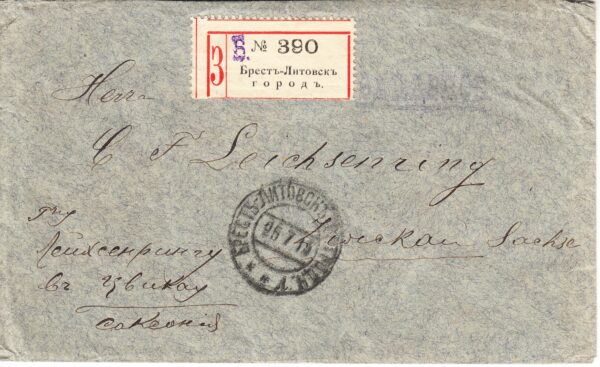 З Б. № 390
Брестъ-Литовскъ
городъ.
Herrn
C F Leichsenring
Zwickau Sachse
БРЕСТЪ-ЛИТОВСКЪ
26.7.13
Г-ну
Лейхсенрингу
въ Цвикау
Саксонія